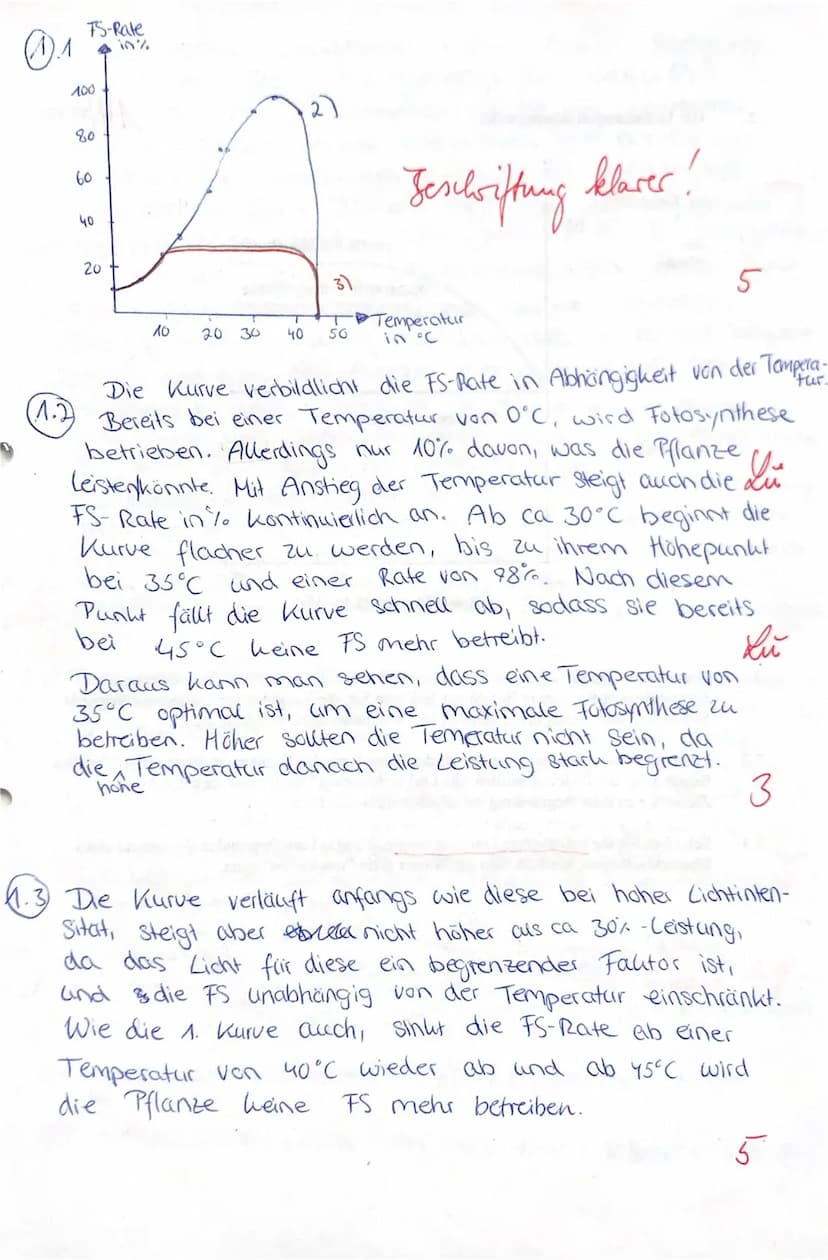 1.1
FS-Rate
in %
100
80
60
40
20
2)
3)
10 20 30 40 50
Temperatur
in °C
Beschriftung klarer!
5
1.2 Die Kurve verbildlicht die FS-Rate in Abhängigkeit von der Tempera-
tur.
Bereits bei einer Temperatur von 0°C, wird Fotosynthese
betrieben. Allerdings nur 10% davon, was die Pflanze
leisten könnte. Mit Anstieg der Temperatur steigt auch die Lü
FS-Rate in % kontinuierlich an. Ab ca 30°C beginnt die
Kurve flacher zu werden, bis zu ihrem Höhepunkt
bei 35°C und einer Rate von 98%. Nach diesem
Punkt fällt die Kurve schnell ab, sodass sie bereits
bei 45°C keine FS mehr betreibt.
Lü
Daraus kann man sehen, dass eine Temperatur von
35°C optimal ist, um eine maximale Fotosynthese zu
betreiben. Höher sollten die Temeratur nicht sein, da
die hohe Temperatur danach die Leistung stark begrenzt.
3
1.3 Die Kurve verläuft anfangs wie diese bei hoher Lichtinten-
sität, steigt aber nicht höher als ca 30% -Leistung,
da das Licht für diese ein begrenzender Faktor ist,
und die FS unabhängig von der Temperatur einschränkt.
Wie die 1. Kurve auch, sinkt die FS-Rate ab einer
Temperatur von 40°C wieder ab und ab 45°C wird
die Pflanze keine FS mehr betreiben.
5